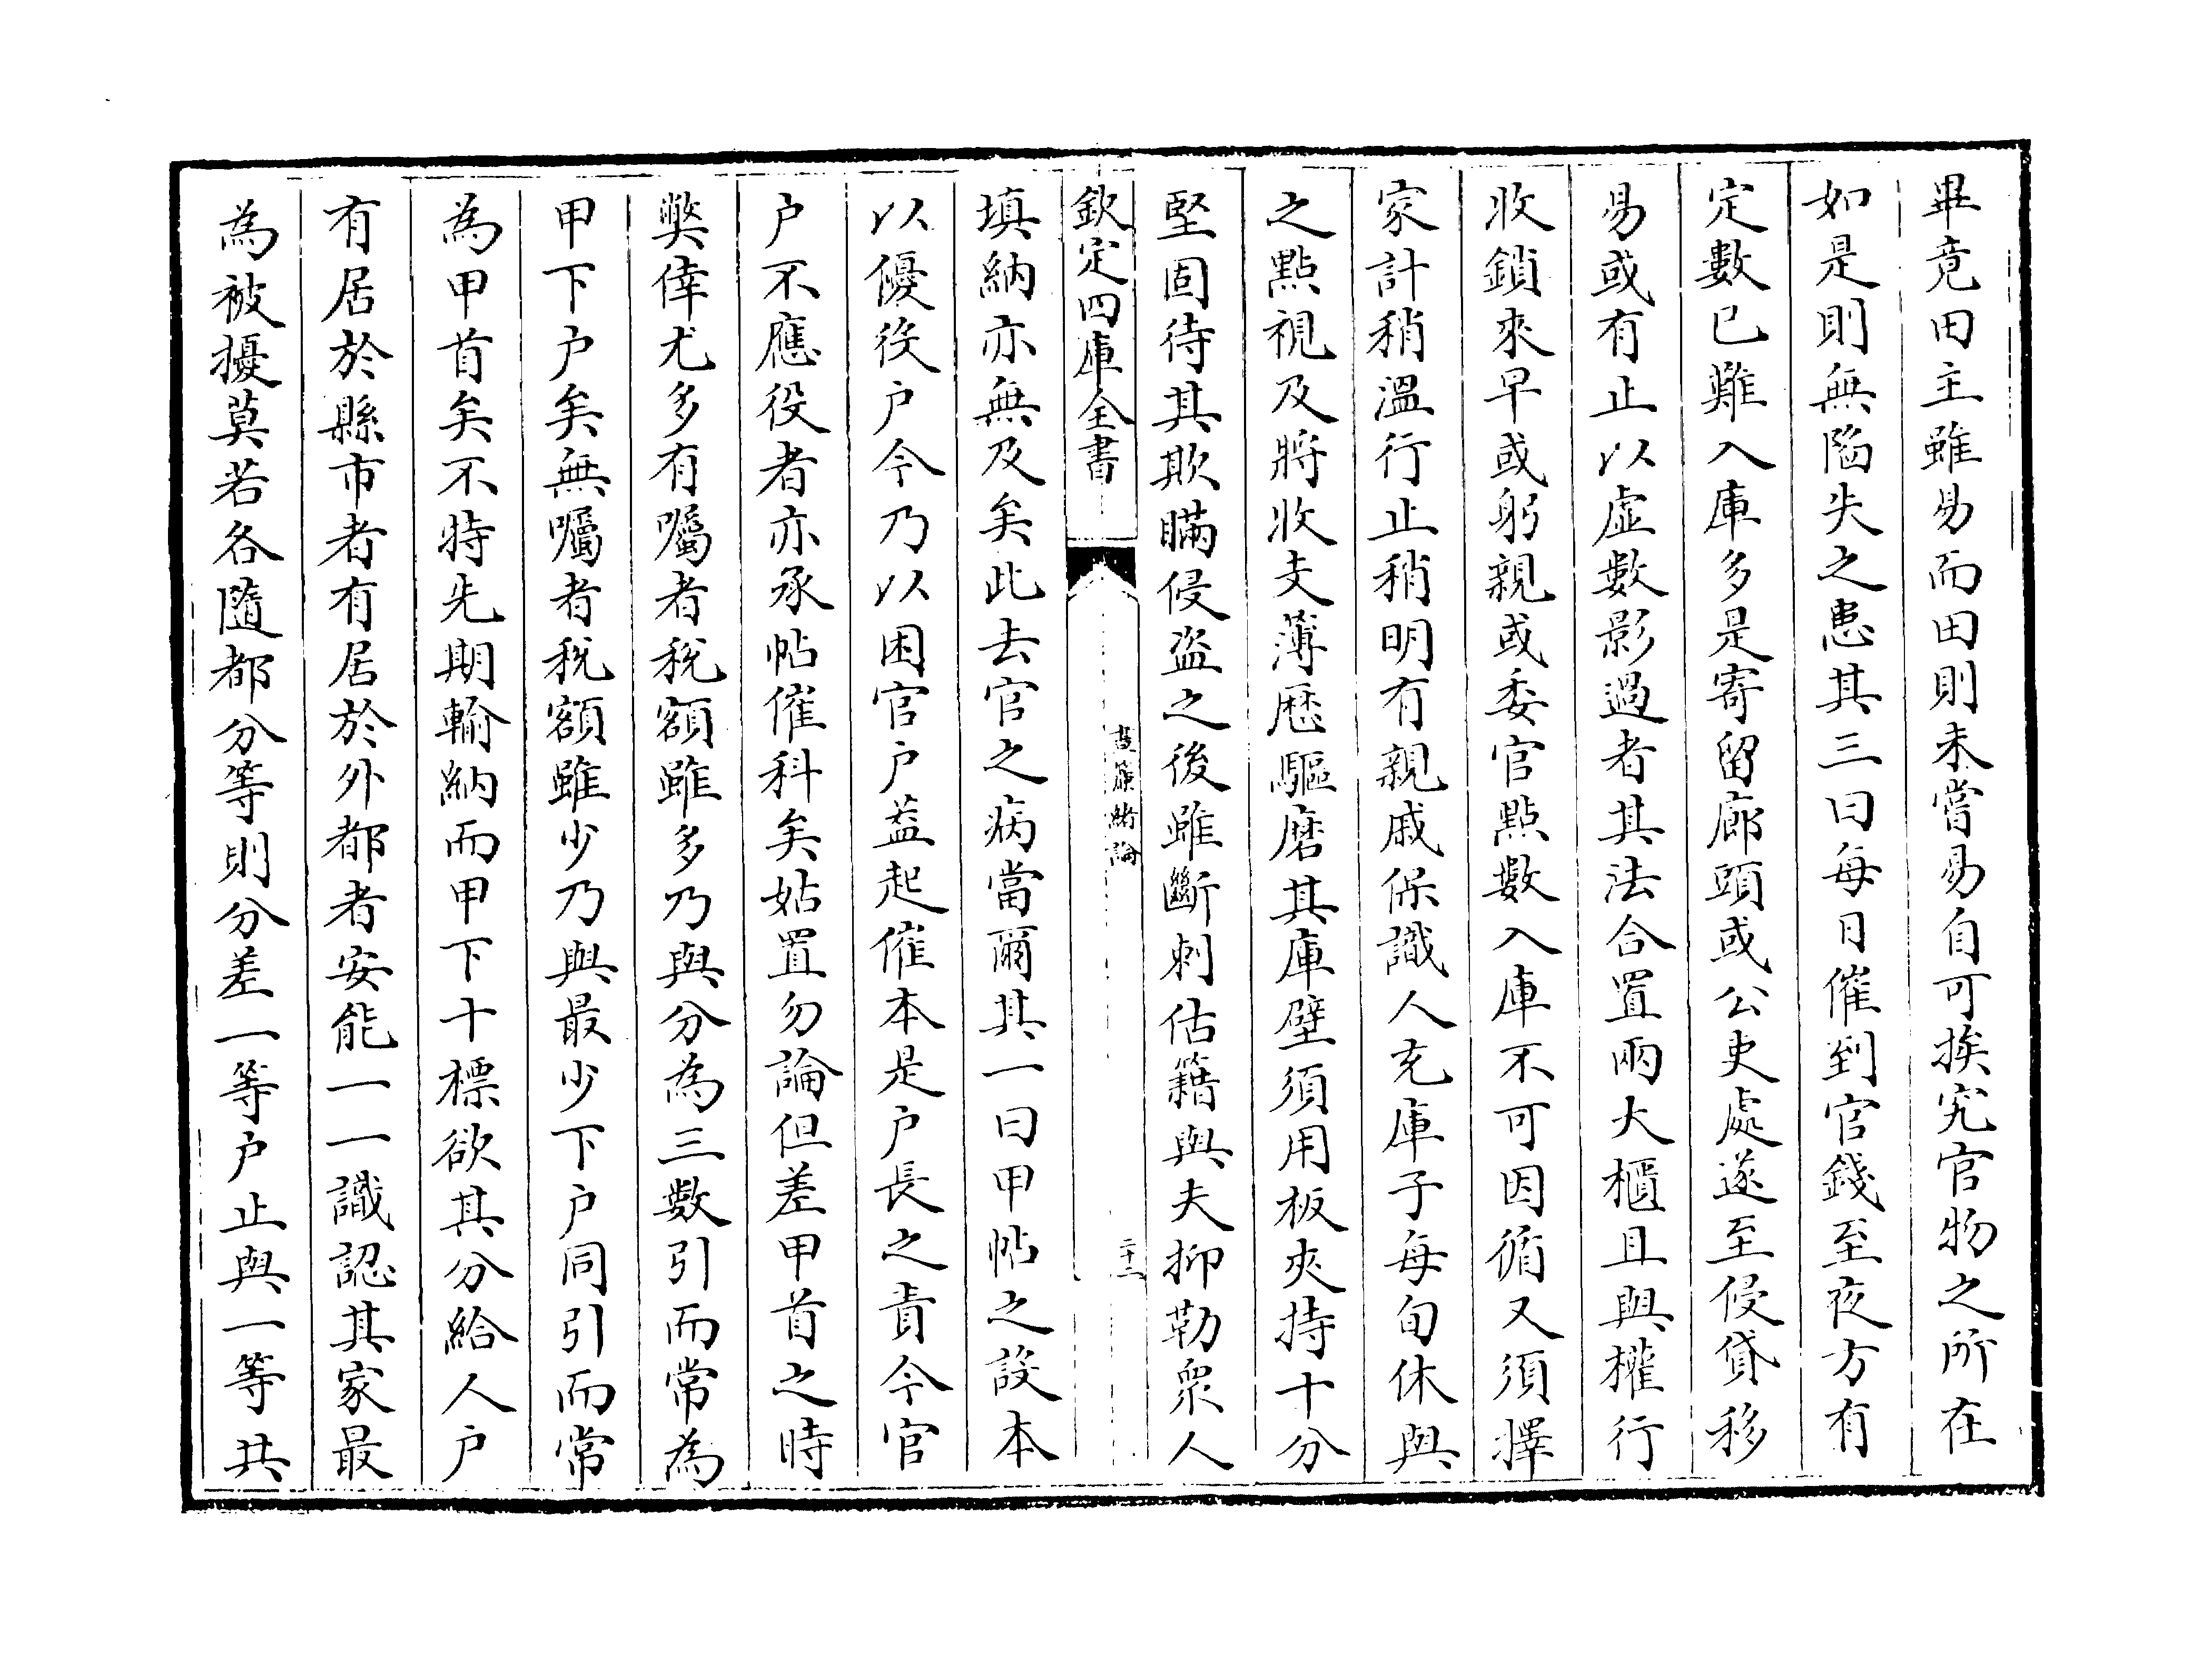 畢竟田主雖易而田則未嘗易自可挨究官物之所在
如是則無陷失之患其三曰每日催到官錢至夜方有
定數已難入庫多是寄留廊頭或公吏處遂至侵貸移
易或有止以虛數影過者其法合置兩大櫃且與權行
收鎖來早或躬親或委官點數入庫不可因循又須擇
家計稍溫行止稍明有親戚保識人充庫子每旬休與
之點視及將收支薄厯驅磨其庫壁須用板夾持十分
堅固待其欺瞞侵盜之後雖斷刺估籍與夫抑勒衆人
欽定四庫全書
晝簾緒論
二十二
填納亦無及矣此去官之病當爾其一曰甲帖之設本
以優役户今乃以困官户葢起催本是户長之責今官
户不應役者亦承帖催科矣姑置勿論但差甲首之時
獘倖尤多有囑者稅額雖多乃與分為三數引而常為
甲下户矣無囑者稅額雖少乃與最少下户同引而常
為甲首矣不特先期輸納而甲下十標欲其分給人户
有居於縣市者有居於外都者安能一一識認其家最
為被擾莫若各隨都分等則分差一等户止與一等共